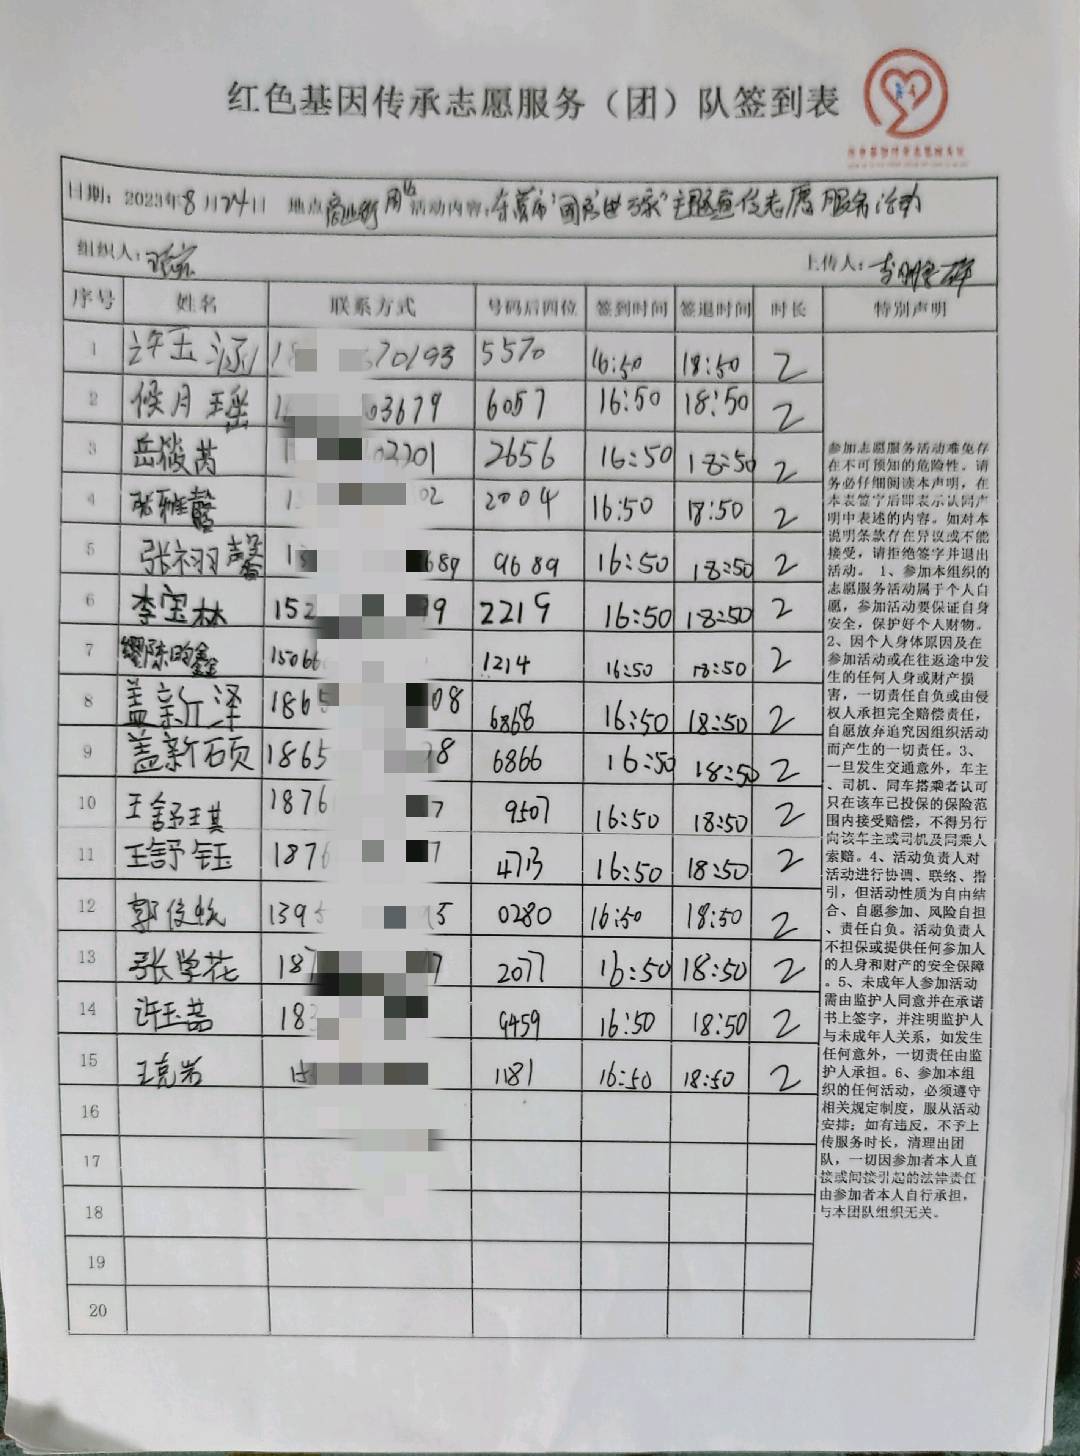 红色基因传承志愿服务（团）队签到表
日期：2023年8月24日 地点 商业街 活动内容： 主题宣传志愿服务活动
组织人： 上传人：
序号 姓名 联系方式 号码后四位 签到时间 签退时间 时长 特别声明
1 许玉涵 18 70193 5570 16:50 18:50 2
2 侯月瑶 1 03679 6057 16:50 18:50 2
3 岳筱芮 1 2656 16:50 18:50 2
4 张雅馨 1 02 2004 16:50 18:50 2
5 张祤馨 1 689 9689 16:50 18:50 2
6 李宝林 152 2219 16:50 18:50 2
7 15066 1214 16:50 18:50 2
8 盖新泽 1865 08 6868 16:50 18:50 2
9 盖新硕 1865 8 6866 16:50 18:50 2
10 王舒琪 1876 7 9507 16:50 18:50 2
11 王舒钰 1876 7 4713 16:50 18:50 2
12 郭俊帆 1395 5 0280 16:50 18:50 2
13 张学花 187 7 2077 16:50 18:50 2
14 许玉菡 18 9459 16:50 18:50 2
15 王克岩 15 1181 16:50 18:50 2
16
17
18
19
20
参加志愿服务活动难免存
在不可预知的危险性。请
务必仔细阅读本声明，在
本表签字后即表示认同声
明中表述的内容。如对本
说明条款存在异议或不能
接受，请拒绝签字并退出
活动。 1、参加本组织的
志愿服务活动属于个人自
愿，参加活动要保证自身
安全，保护好个人财物。
2、因个人身体原因及在
参加活动或在往返途中发
生的任何人身或财产损
害，一切责任自负或由侵
权人承担完全赔偿责任，
自愿放弃追究因组织活动
而产生的一切责任。3、
一旦发生交通意外，车主
、司机、同车搭乘者认可
只在该车已投保的保险范
围内接受赔偿，不得另行
向该车主或司机及同乘人
索赔。4、活动负责人对
活动进行协调、联络、指
引，但活动性质为自由结
合、自愿参加、风险自担
、责任自负。活动负责人
不担保或提供任何参加人
的人身和财产的安全保障
。5、未成年人参加活动
需由监护人同意并在承诺
书上签字，并注明监护人
与未成年人关系，如发生
任何意外，一切责任由监
护人承担。6、参加本组
织的任何活动，必须遵守
相关规定制度，服从活动
安排；如有违反，不予上
传服务时长，清理出团
队，一切因参加者本人直
接或间接引起的法律责任
由参加者本人自行承担，
与本团队组织无关。